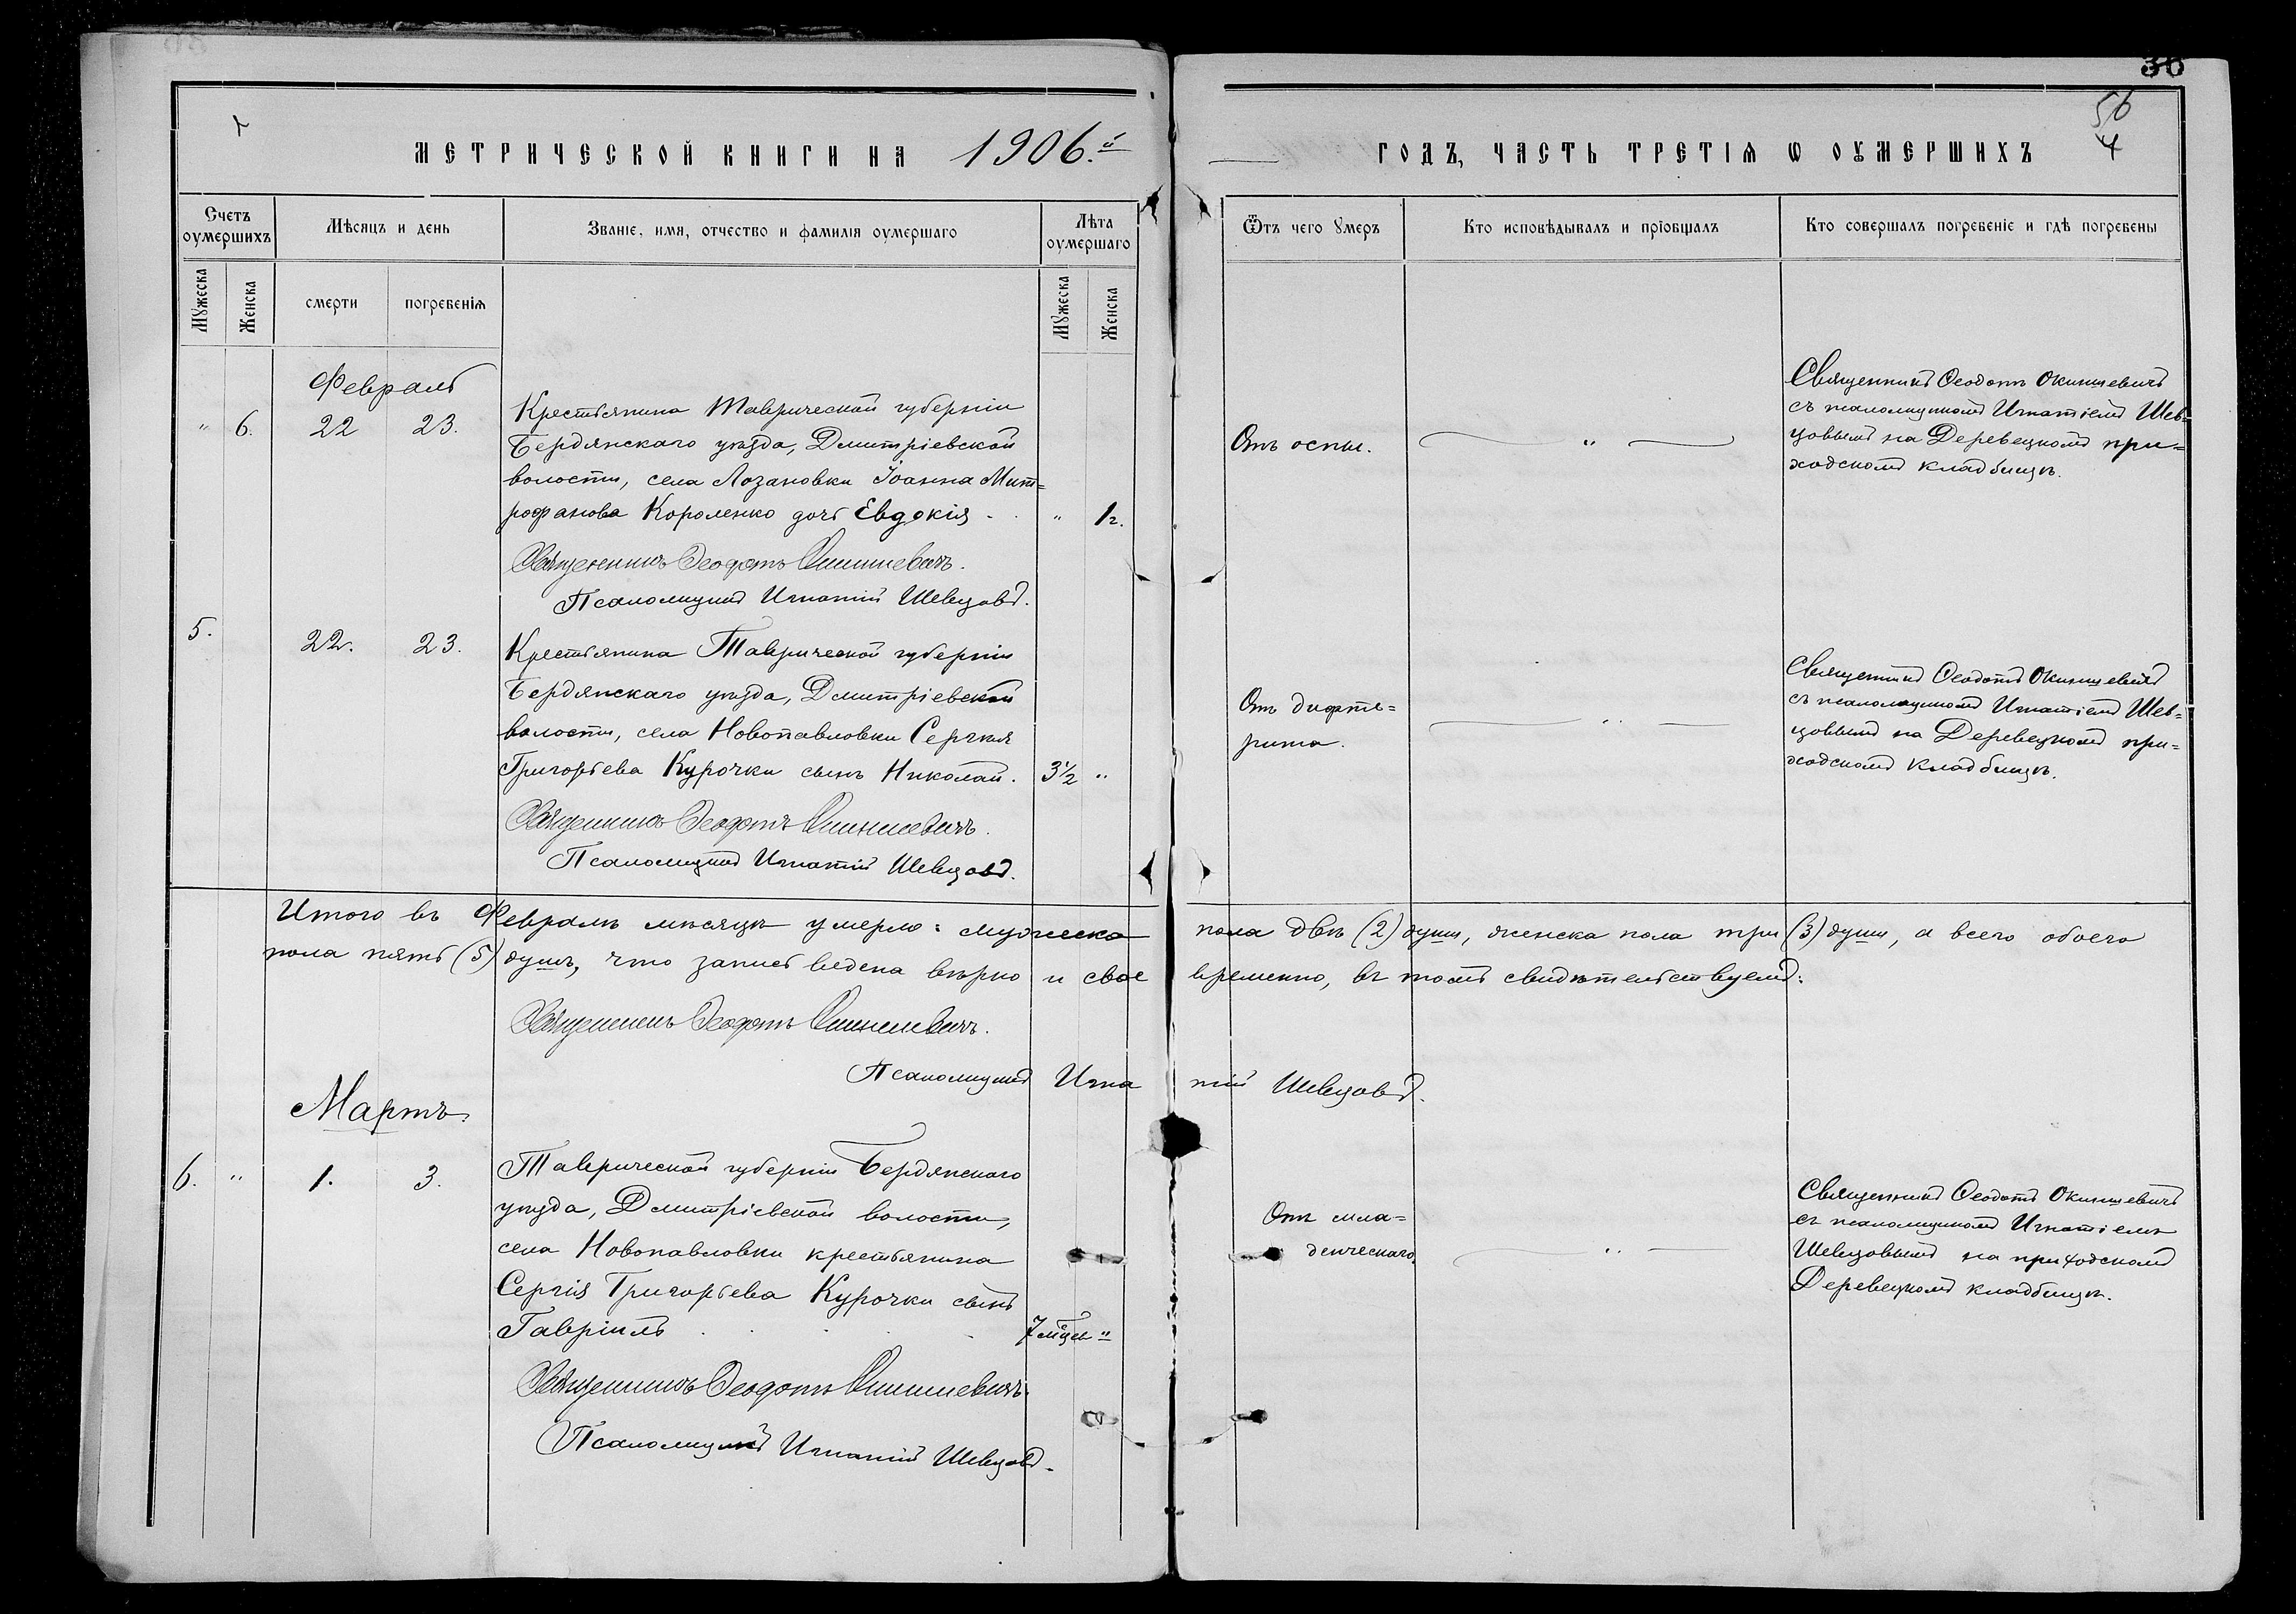 30
56
4
МЕТРИЧЕСКОЙ КНИГИ НА 1906.й
ГОДЪ, ЧАСТЬ ТРЕТІѦ Ѡ ОУМЕРШИХЪ
Счетъ оумершихъ
Мѣсяцъ и день
Званіе, имя, отчество и фамилія оумершаго
Лѣта оумершаго
Ѿтъ чего Ꙋмеръ
Кто исповѣдывалъ и пріобщалъ
Кто совершалъ погребеніе и гдѣ погребены
МꙊжеска
Женска
смерти
погребенія
МꙊжеска
Женска
Февраль
" 6. 22 23.
Крестьянина Таврической губерніи
Бердянскаго уѣзда, Дмитріевской
волости, села Лозановки Іоанна Мит=
рофанова Короленко дочь Евдокія - " 1г.
Отъ оспы.
"
Священникъ Ѳеодотъ Окиншевичъ
съ псаломщикомъ Игнатіемъ Шев=
цовымъ на Деревецкомъ при=
ходскомъ кладбищѣ.
Священникъ Ѳеодотъ Окиншевичъ.
Псаломщикъ Игнатій Шевцовъ.
5. 22. 23.
Крестьянина Таврической губерніи
Бердянскаго уѣзда, Дмитріевской
волости, села Новопавловки Сергія
Григорьева Курочки сынъ Николай. 3½ "
Отъ дифте=
рита.
"
Священникъ Ѳеодотъ Окиншевичъ
съ псаломщикомъ Игнатіемъ Шев=
цовымъ на Деревецкомъ при=
ходскомъ кладбищѣ.
Священникъ Ѳеодотъ Окиншевичъ.
Псаломщикъ Игнатій Шевцовъ.
Итого въ Февралѣ мѣсяцѣ умерло: мужеска пола двѣ (2) души, женска пола три (3) души, а всего обоего
пола пять (5) душъ, что запись ведена вѣрно и свое временно, въ томъ свидѣтельствуемъ:
Священникъ Ѳеодотъ Окиншевичъ.
Псаломщикъ Игнатій Шевцовъ.
Мартъ.
6. " 1. 3.
Таврической губерніи Бердянскаго
уѣзда, Дмитріевской волости,
села Новопавловки крестьянина
Сергія Григорьева Курочки сынъ
Гавріилъ 7 мѣсц "
Отъ мла=
денческаго.
"
Священникъ Ѳеодотъ Окиншевичъ
съ псаломщикомъ Игнатіемъ
Шевцовымъ на приходскомъ
Деревецкомъ кладбищѣ.
Священникъ Ѳеодотъ Окиншевичъ.
Псаломщикъ Игнатій Шевцовъ.